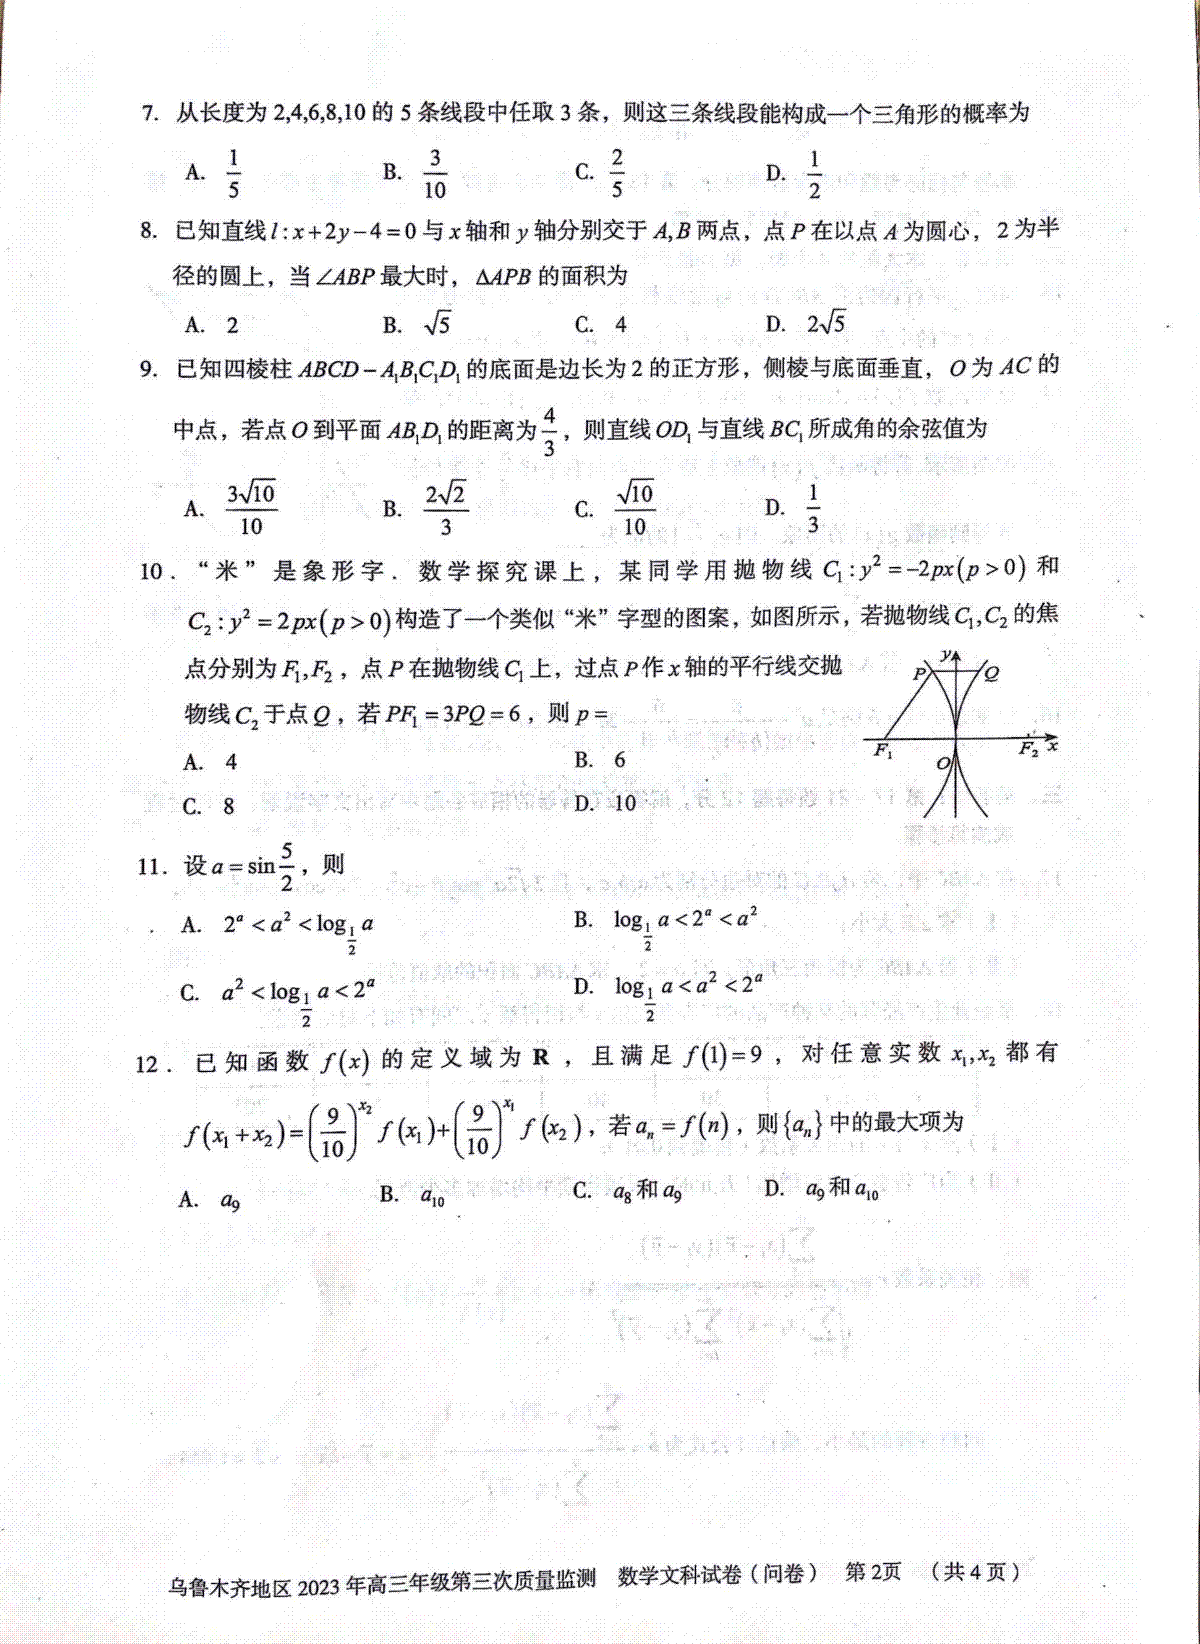 7. 从长度为 2,4,6,8,10 的 5 条线段中任取 3 条，则这三条线段能构成一个三角形的概率为
A. 1/5 B. 3/10 C. 2/5 D. 1/2
8. 已知直线 l:x+2y−4=0 与 x 轴和 y 轴分别交于 A,B 两点，点 P 在以点 A 为圆心，2 为半
径的圆上，当 ∠ABP 最大时，△APB 的面积为
A. 2 B. √5 C. 4 D. 2√5
9. 已知四棱柱 ABCD−A₁B₁C₁D₁ 的底面是边长为 2 的正方形，侧棱与底面垂直，O 为 AC 的
中点，若点 O 到平面 AB₁D₁ 的距离为 4/3，则直线 OD₁ 与直线 BC₁ 所成角的余弦值为
A. 3√10/10 B. 2√2/3 C. √10/10 D. 1/3
10．“米”是象形字．数学探究课上，某同学用抛物线 C₁:y²=−2px(p>0) 和
C₂:y²=2px(p>0) 构造了一个类似“米”字型的图案，如图所示，若抛物线 C₁,C₂ 的焦
点分别为 F₁,F₂，点 P 在抛物线 C₁ 上，过点 P 作 x 轴的平行线交抛
物线 C₂ 于点 Q，若 PF₁=3PQ=6，则 p=
A. 4 B. 6
C. 8 D. 10
y P Q F₁ O F₂ x
11. 设 a=sin 5/2，则
A. 2^a<a²<log_{1/2} a B. log_{1/2} a<2^a<a²
C. a²<log_{1/2} a<2^a D. log_{1/2} a<a²<2^a
12．已知函数 f(x) 的定义域为 R，且满足 f(1)=9，对任意实数 x₁,x₂ 都有
f(x₁+x₂)=(9/10)^{x₂} f(x₁)+(9/10)^{x₁} f(x₂)，若 aₙ=f(n)，则{aₙ}中的最大项为
A. a₉ B. a₁₀ C. a₈和a₉ D. a₉和a₁₀
乌鲁木齐地区 2023 年高三年级第三次质量监测 数学文科试卷（问卷） 第 2页 （共 4 页）